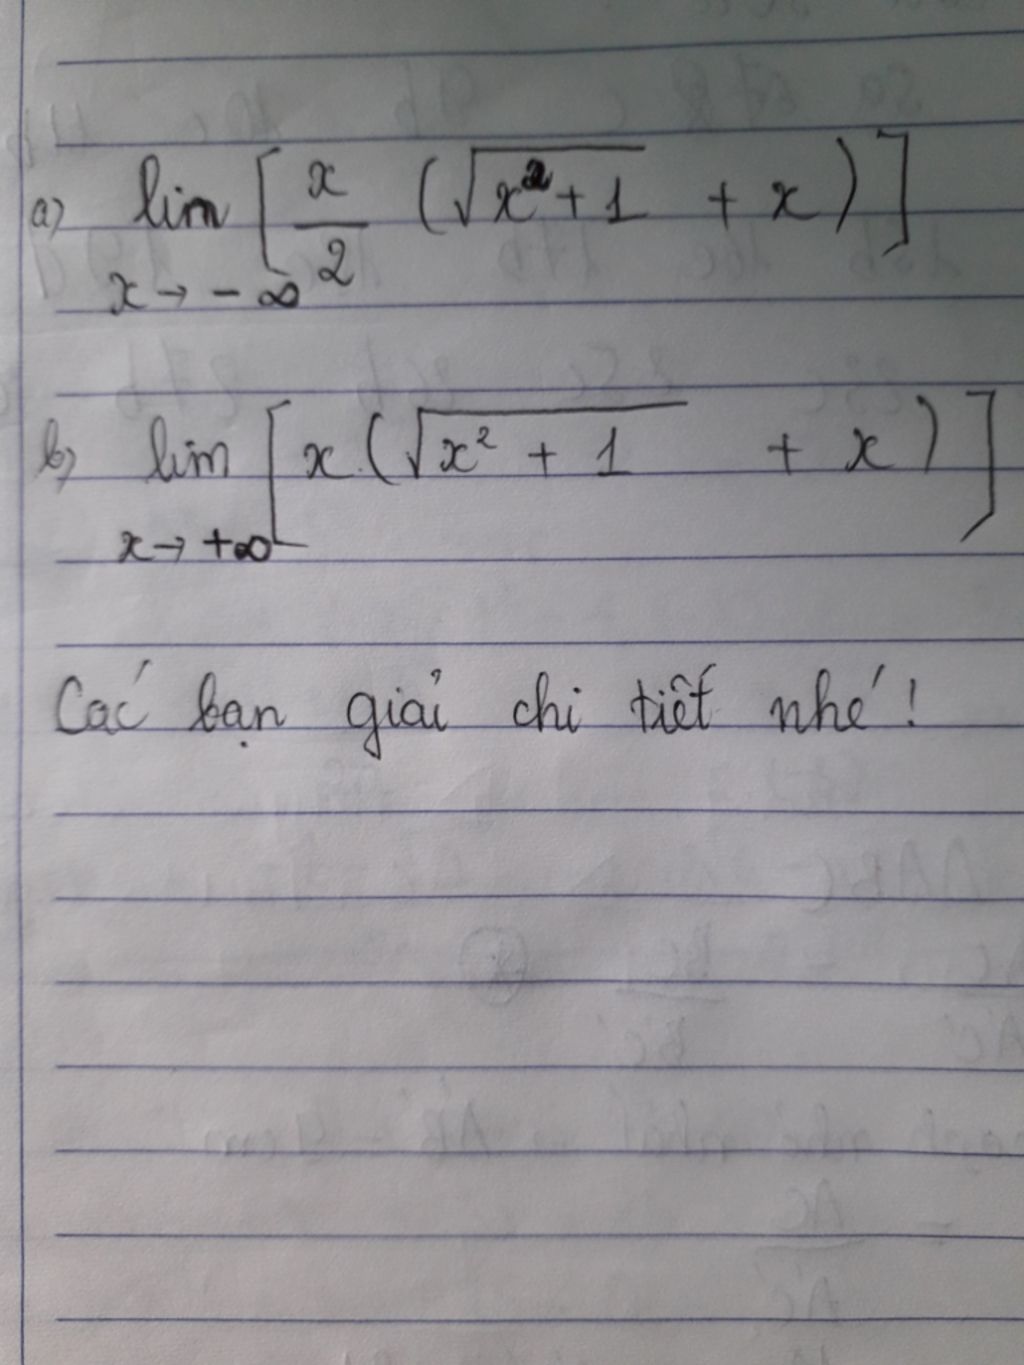 a) lim [ x/2 (√x²+1 + x) ]
x → -∞
b) lim [ x (√x² + 1 + x) ]
x → +∞
Các bạn giải chi tiết nhé!